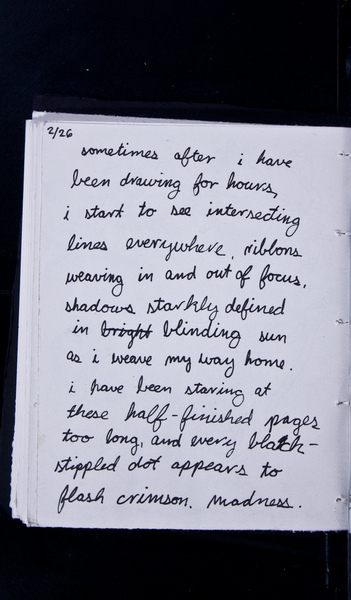 2/26
sometimes after i have
been drawing for hours,
i start to see intersecting
lines everywhere, ribbons
weaving in and out of focus,
shadows starkly defined
in bright blinding sun
as i weave my way home.
i have been staring at
these half-finished pages
too long, and every black-
stippled dot appears to
flash crimson. madness.